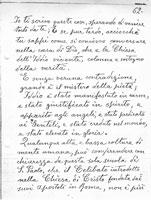 62.
Io ti scrivo queste cose, sperando di venire
tosto da te; E se pur tardo, acciocchè
tu sappi come si convenga conversare
nella casa di Dio, che è la Chiesa
dell'Iddio vivente, colonna e sostegno
della verità.
E senza veruna contradizione,
grande è il mistero della pietà;
Iddio è stato manifestato in carne,
è stato giustificato in ispirito, è
apparito agli angeli, è stato predicato
ai Gentili, è stato creduto nel mondo,
è stato elevato in gloria.
Qualunque altra, chiesa
umana, può
chiarezza da questa sola scuola di
S. Paolo, che il Celibato
nella Chiesa di Cristo fondata dai
suoi apostoli in Roma, non è più